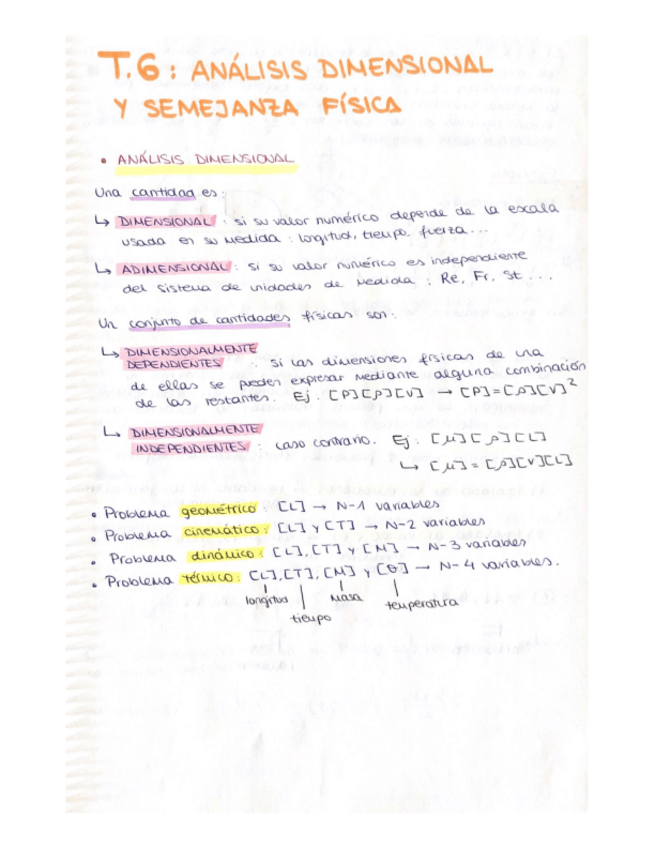 T.6: ANÁLISIS DIMENSIONAL
Y SEMEJANZA FÍSICA
• ANÁLISIS DIMENSIONAL
Una cantidad es:
↳ DIMENSIONAL: si su valor numérico depende de la escala
usada en su medida: longitud, tiempo, fuerza...
↳ ADIMENSIONAL: si su valor numérico es independiente
del sistema de unidades de medida: Re, Fr, St...
Un conjunto de cantidades físicas son:
↳ DIMENSIONALMENTE
DEPENDIENTES: si las dimensiones físicas de una
de ellas se pueden expresar mediante alguna combinación
de las restantes. Ej: [P][ρ][V] → [P]=[ρ][V]²
↳ DIMENSIONALMENTE
INDEPENDIENTES: caso contrario. Ej: [μ][ρ][L]
↳ [μ]=[ρ][V][L]
• Problema geométrico: [L] → N-1 variables
• Problema cinemático: [L] y [T] → N-2 variables
• Problema dinámico: [L],[T] y [M] → N-3 variables
• Problema térmico: [L],[T],[M] y [θ] → N-4 variables.
longitud tiempo masa temperatura